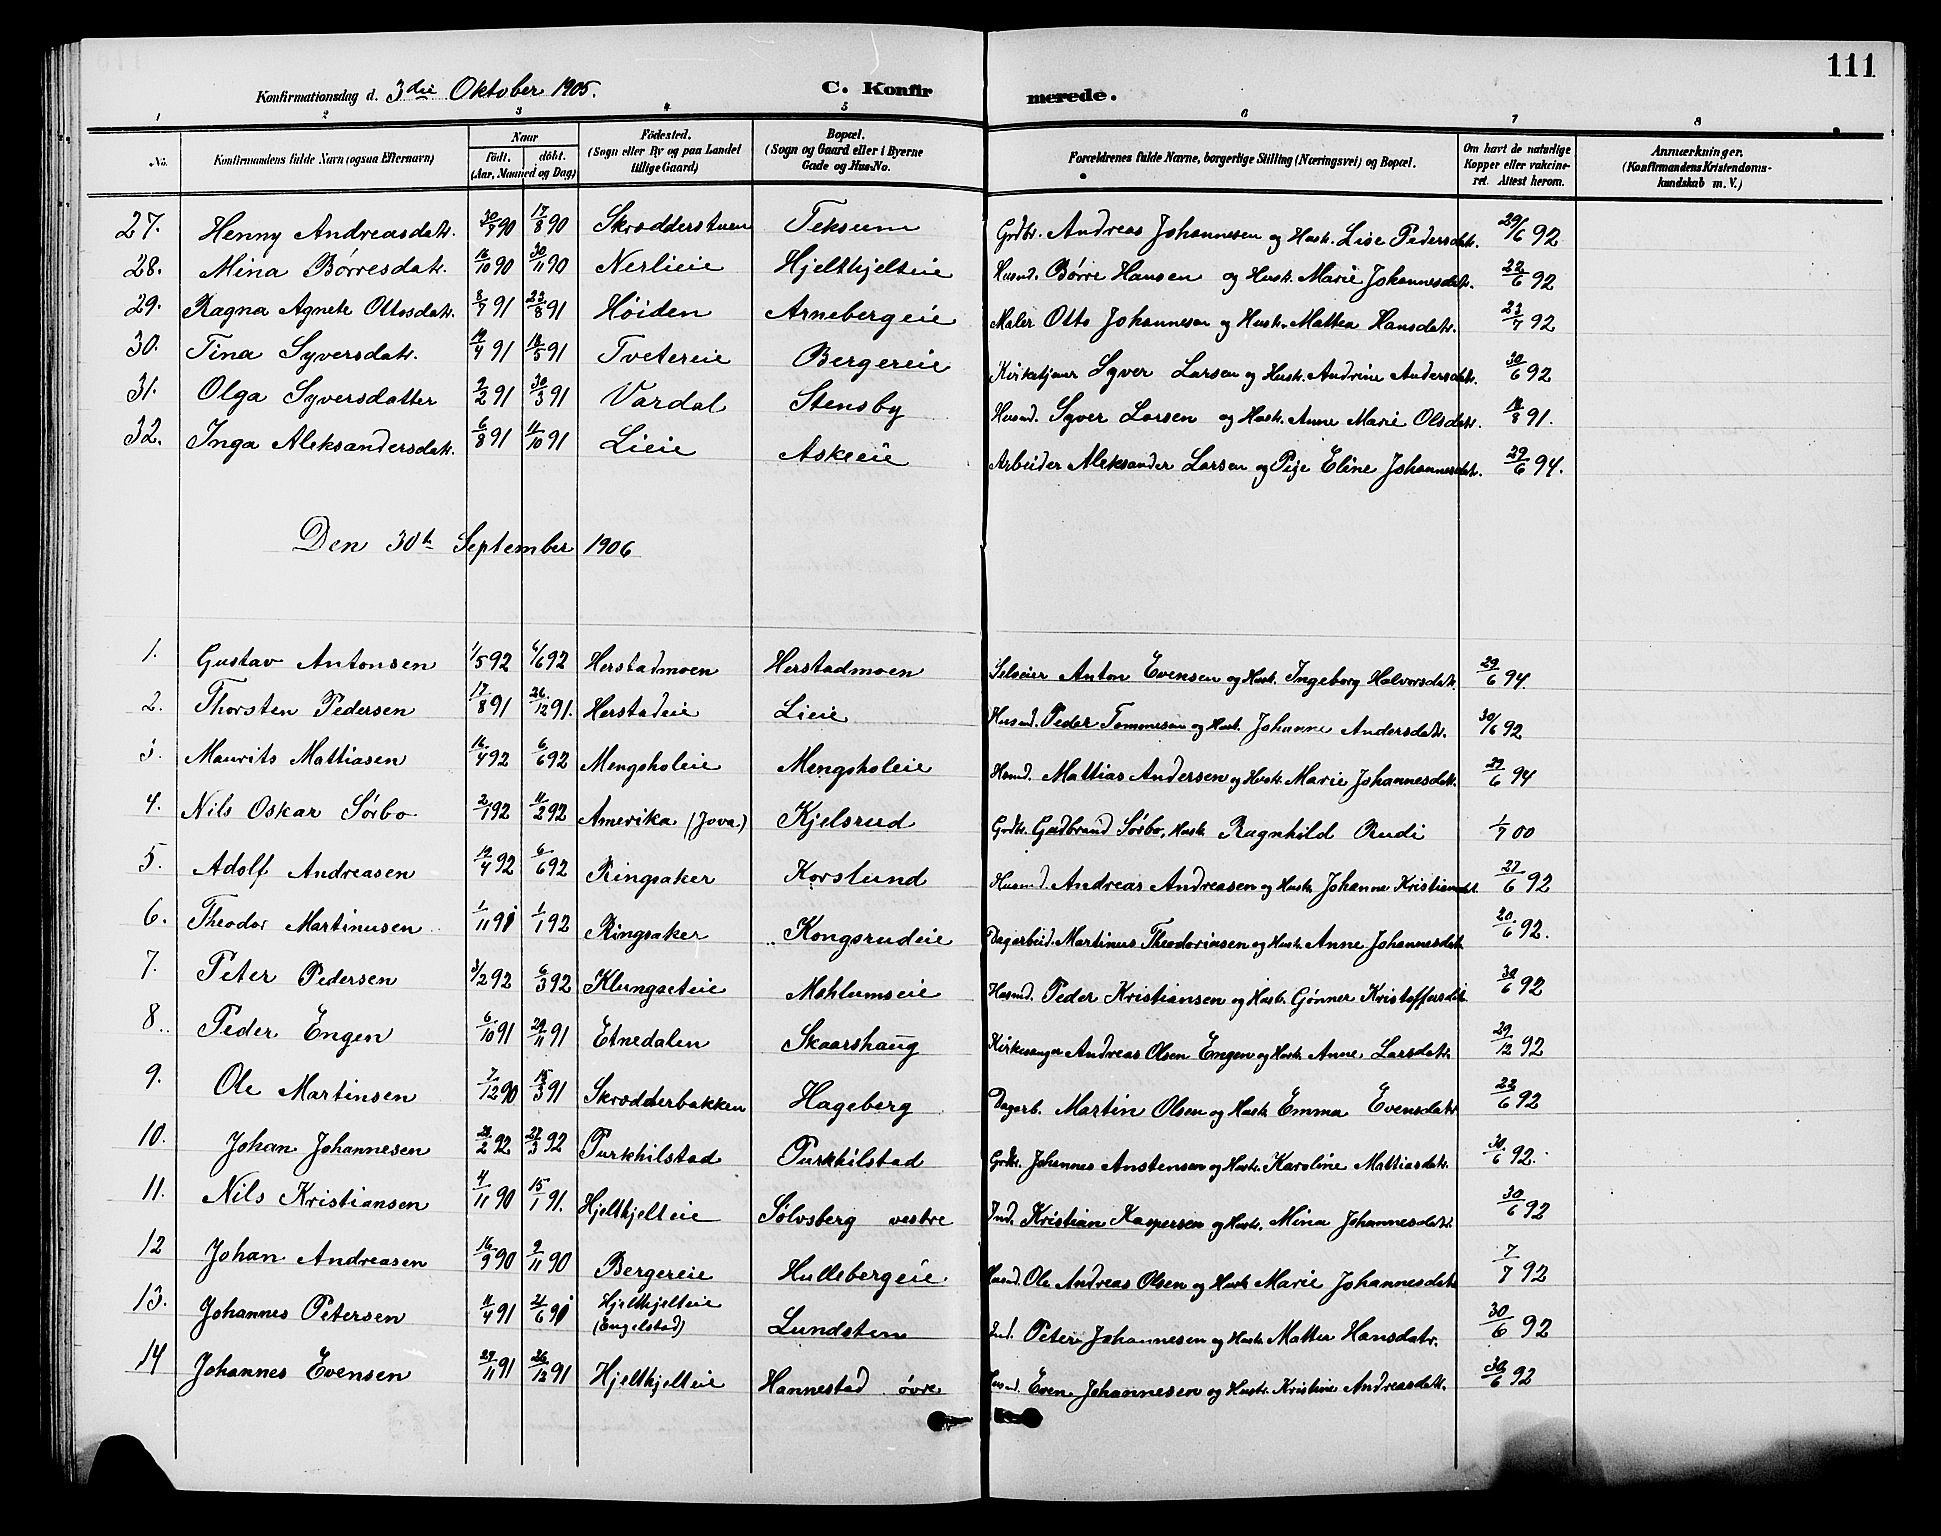 111
Konfirmationsdag d. 3die Oktober 1905. C. Konfirmerede.
1 2 3 4 5 6 7 8
No. Konfirmandens fulde Navn (ogsaa Efternavn) Naar födt. döbt. (Aar, Maaned og Dag) Födested. (Sogn eller By og paa Landet tillige Gaard) Bopæl. (Sogn og Gaard eller i Byerne Gade og Hus-No. Forældrenes fulde Navne, borgerlige Stilling (Næringsvei) og Bopæl. Om havt de naturlige Kopper eller vakcineret. Attest herom. Anmærkninger. (Konfirmandens Kristendomskundskab m. V.)
27. Henny Andreasdatr. 30/7 90 17/8 90 Skrædderstuen Teksum Grdbr. Andreas Johannesen og Hustr. Lise Pedersdatr. 29/6 92
28. Mina Børresdatr. 16/10 90 30/11 90 Nerlieie Hjelthjelteie Husmd. Børre Hansen og Hustr. Marie Johannesdatr. 22/6 92
29. Ragna Agnete Ottosdatr. 8/7 91 23/8 91 Høiden Arnebergeie Maler Otto Johannesen og Hustr. Mathea Hansdatr. 23/7 92
30. Tina Syversdatr. 19/4 91 18/5 91 Tvetereie Bergereie Kirketjener Syver Larsen og Hustr. Andrine Andersdatr. 30/6 92
31. Olga Syversdatter 2/2 91 30/3 91 Vardal Stensby Husmd. Syver Larsen og Hustr. Anne Marie Olsdatr. 18/8 91.
32. Inga Aleksandersdatr. 6/8 91 11/10 91 Lieie Askeeie Arbeider Aleksander Larsen og Pige Eline Johannesdatr. 29/6 94.
Den 30th September 1906
1. Gustav Antonsen 1/5 92 6/6 92 Herstadmoen Herstadmoen Selveier Anton Evensen og Hustr. Ingeborg Halvorsdatr. 29/6 94.
2. Thorsten Pedersen 17/8 91 26/12 91. Herstadeie Lieie Husmd. Peder Tommesen og Hustr. Johanne Andersdatr. 30/6 92
3. Maurits Mattiasen 16/4 92 6/6 92 Mengsholeie Mengsholeie Husmd. Mattias Andersen og Hustr. Marie Johannesdatr. 29/6 94
4. Nils Oskar Sørbo 2/1 92 11/2 92 Amerika (Jova) Kjelsrud Grdbr. Gudbrand Sørbo, Hustr. Ragnhild Rudi 1/7 00
5. Adolf Andreasen 19/4 92 6/6 92 Ringsaker Korslund Husmd. Andreas Andreasen og Hustr. Johanne Kristiansdt. 27/6 92
6. Theodor Martinusen 1/11 91 1/1 92 Ringsaker Kongsrudeie Dagarbeid. Martinus Theodoriusen og Hustr. Anne Johannesdatr. 20/6 92.
7. Peter Pedersen 3/2 92 6/3 92 Klungseteie Mohlumseie Husmd. Peder Kristiansen og Hustr. Gønner Kristoffersdatr. 30/6 92
8. Peder Engen 6/10 91 29/11 91 Etnedalen Skaarshaug Kirkesanger Andreas Olsen Engen og Hustr. Anne Larsdatr. 29/12 92
9. Ole Martinsen 7/12 90 15/3 91 Skrædderbakken Hageberg Dagarb. Martin Olsen og Hustr. Emma Evensdatr 22/6 92
10. Johan Johannesen 28/2 92 27/3 92 Purkhilstad Purkhilstad Grdbr. Johannes Anstensen og Hustr. Karoline Mattiasdatr. 30/6 92.
11. Nils Kristiansen 4/11 90 15/1 91. Hjelthjelteie Sølvsberg vestre Ind. Kristian Kaspersen og Hustr. Mina Johannesdatr. 30/6 92
12 Johan Andreasen 16/9 90 9/11 90 Bergereie Hullebergeie. Husmd. Ole Andreas Olsen og Hustr. Marie Johannesdatr 7/7 92
13. Johannes Petersen 11/4 91 21/6 91 Hjelthjelteie (Engelstad) Lundsten Ind. Peter Johannesen og Hustr. Mattea Hansdatr. 30/6 92
14 Johannes Evensen 27/11 91 26/12 91 Hjelthjelteie Hannestad øvre Husmd. Even Johannesen og Hustr. Kristine Andreasdatr. 30/6 92